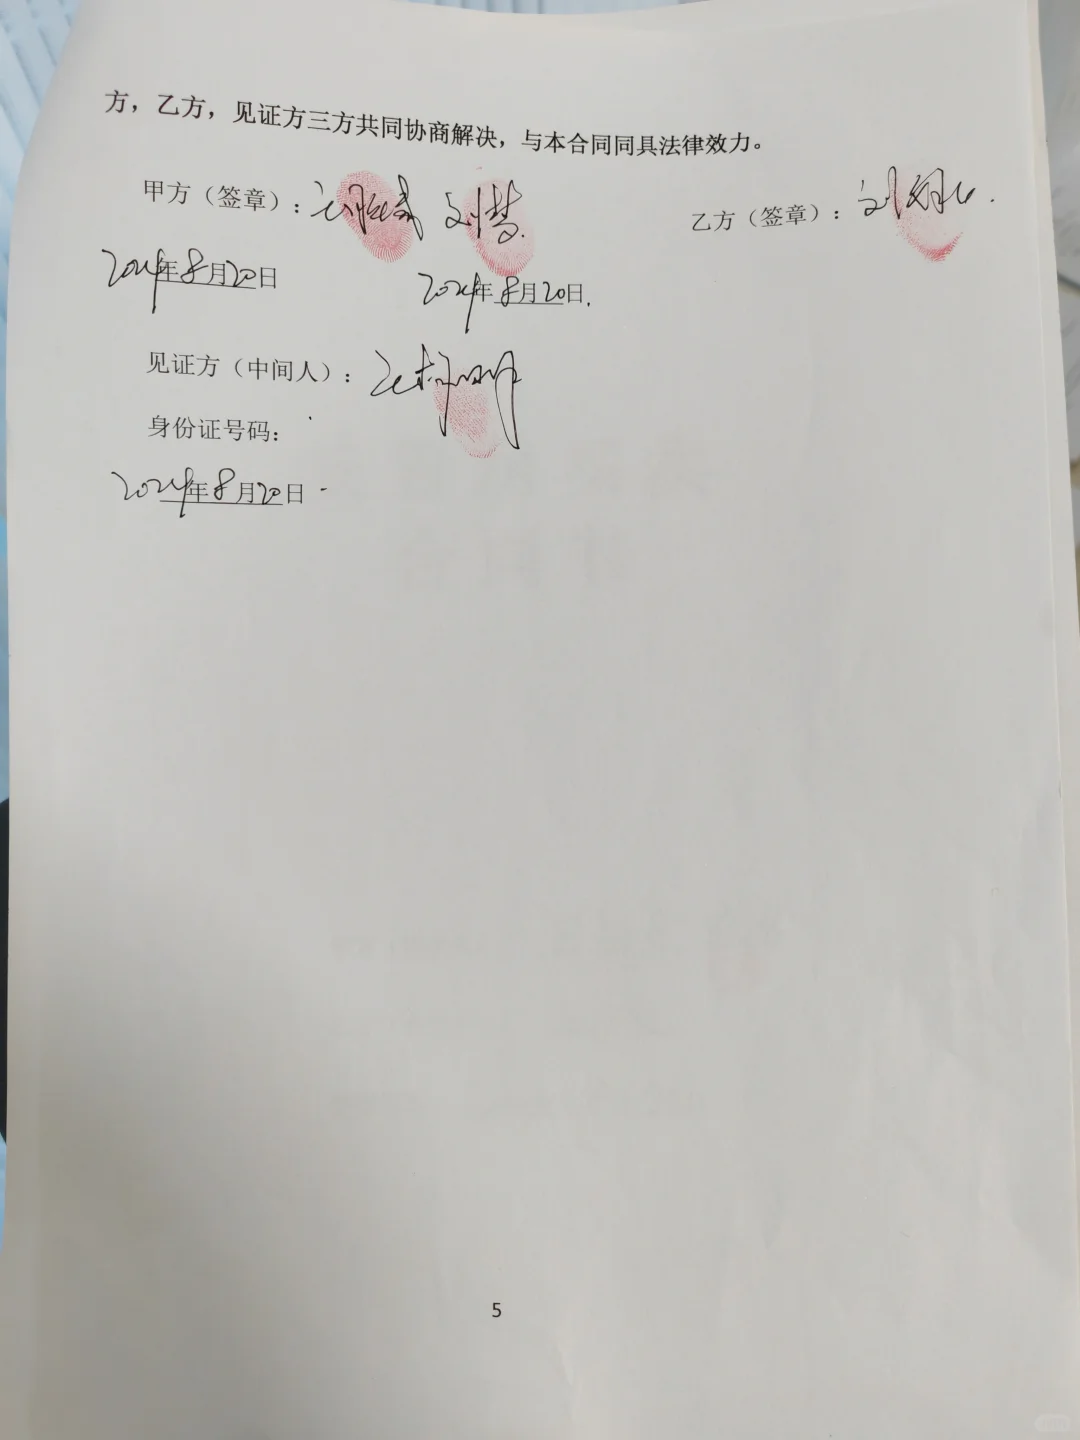 方，乙方，见证方三方共同协商解决，与本合同同具法律效力。
甲方（签章）： 刘慧 乙方（签章）： 刘
2024年8月20日 2024年8月20日
见证方（中间人）：
身份证号码：
2024年8月20日
5